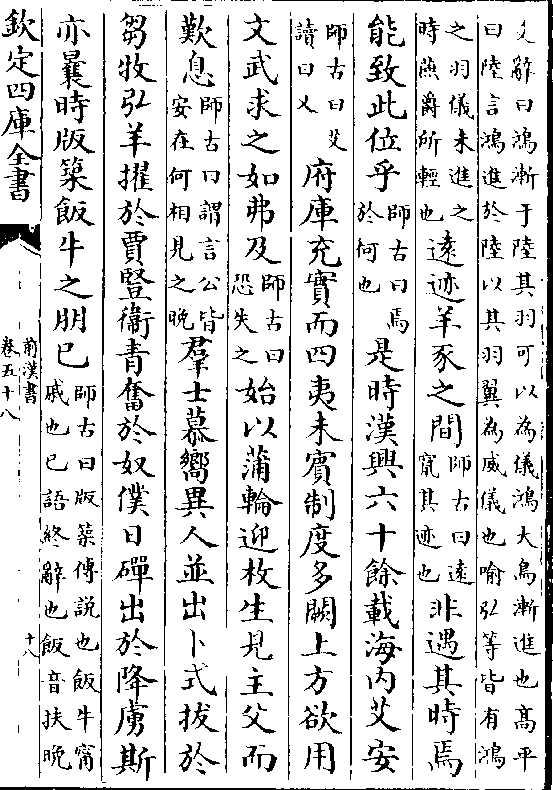 爻辭曰鴻漸于陸其羽可以為儀鴻大鳥漸進也髙平
曰陸言鴻進於陸以其羽翼為威儀也喻弘等皆有鴻
之羽儀未進之時燕爵所輕也逺迹羊豕之間師古曰逺竄其迹也非遇其時焉
能致此位乎師古曰焉於何也是時漢興六十餘載海内艾安
師古曰艾讀曰乂府庫充實而四夷未賓制度多闕上方欲用
文武求之如弗及師古曰恐失之始以蒲輪迎枚生見主父而
歎息師古曰謂言公皆安在何相見之晚羣士慕嚮異人並出卜式拔於
芻牧弘羊擢於賈豎衛青奮於奴僕日磾出於降虜斯
亦曩時版築飯牛之朋已師古曰版築傅説也飯牛甯戚也已語終辭也飯音扶晚
欽定四庫全書
前漢書
卷五十八
十八